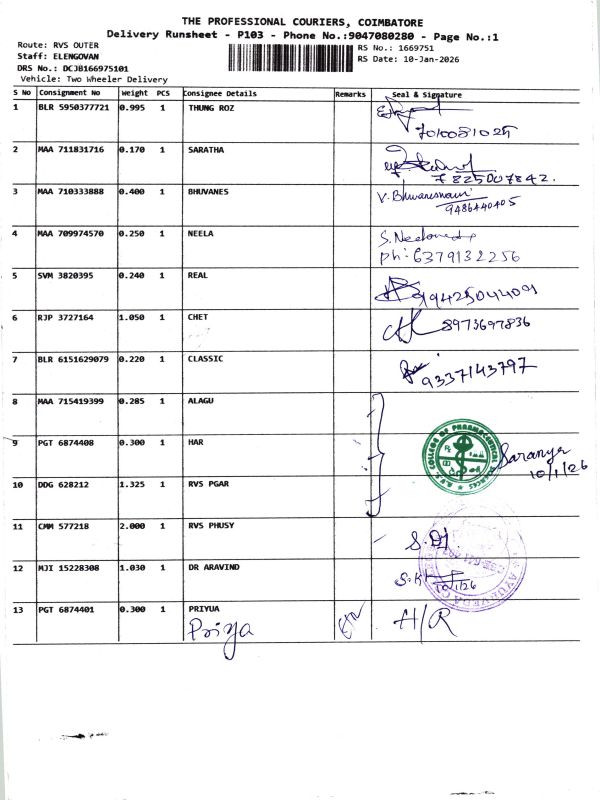 THE PROFESSIONAL COURIERS, COIMBATORE
Delivery Runsheet - P103 - Phone No.:9047080280 - Page No.:1
Route: RVS OUTER
Staff: ELENGOVAN
DRS No.: DCJB166975101
Vehicle: Two Wheeler Delivery
RS No.: 1669751
RS Date: 10-Jan-2026
S No Consignment No Weight PCS Consignee Details Remarks Seal & Signature
1 BLR 5950377721 0.995 1 THUNG ROZ
7010081025
2 MAA 711831716 0.170 1 SARATHA
7825007842.
3 MAA 710333888 0.400 1 BHUVANES V. Bhuvaneswari
9486440405
4 MAA 709974570 0.250 1 NEELA S.
ph: 6379132256
5 SVM 3820395 0.240 1 REAL 9942504409
6 RJP 3727164 1.050 1 CHET 8973697836
7 BLR 6151629079 0.220 1 CLASSIC 9337143797
8 MAA 715419399 0.285 1 ALAGU
9 PGT 6874408 0.300 1 HAR Saranya
10/1/26
COLLEGE OF PHARMACEUTICAL
10 DDG 628212 1.325 1 RVS PGAR
11 CMM 577218 2.000 1 RVS PHUSY
AYURVEDA
12 MJI 15228308 1.030 1 DR ARAVIND S.K
13 PGT 6874401 0.300 1 PRIYUA H/R
Priya